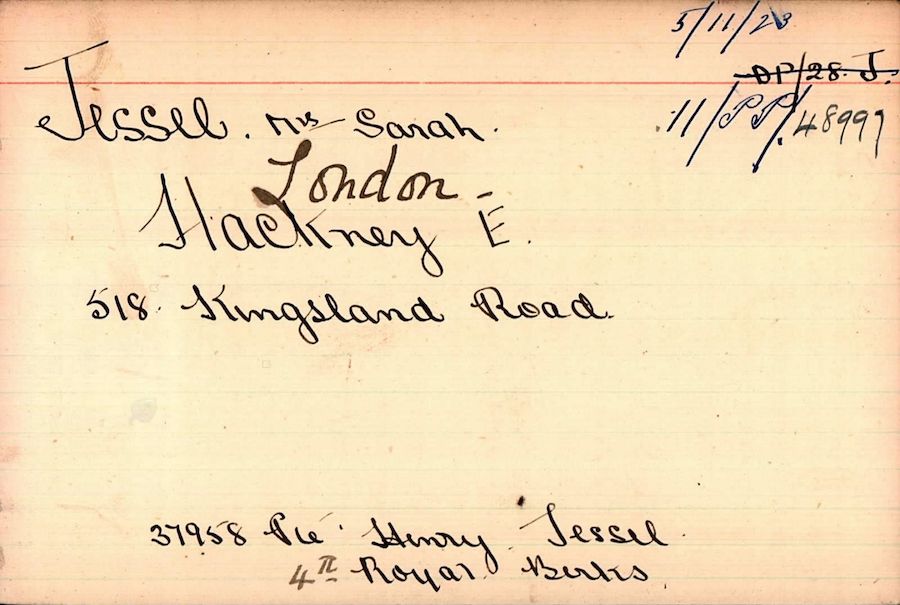 5/11/23
DP/28. J.
Jessel. Mrs Sarah.
11/PP/48997
London -
Hackney E.
518. Kingsland Road.
37958 Pte. Henry Jessel.
4th Royal Berks